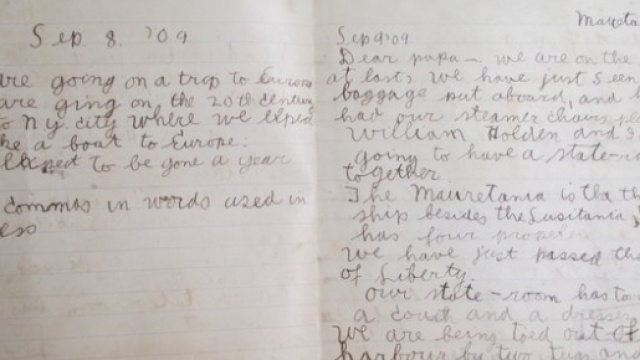 Sep. 8. '09
are going on a trip to Europe
are ging on the 20th century
to N y city where we expect
a boat to Europe:
expect to be gone a year
commas in words used in
Maureta
Sep 9 '09
Dear papa – we are on the
at last, we have just seen
baggage put aboard, and
had our steamer chairs
William Holden and I
going to have a state-r
together
The Mauretania is the
ship besides the Lusitania,
has four
we have just passed the
of Liberty.
our state-room has
a couch and a dresser
We are being toed out of
harbour by two